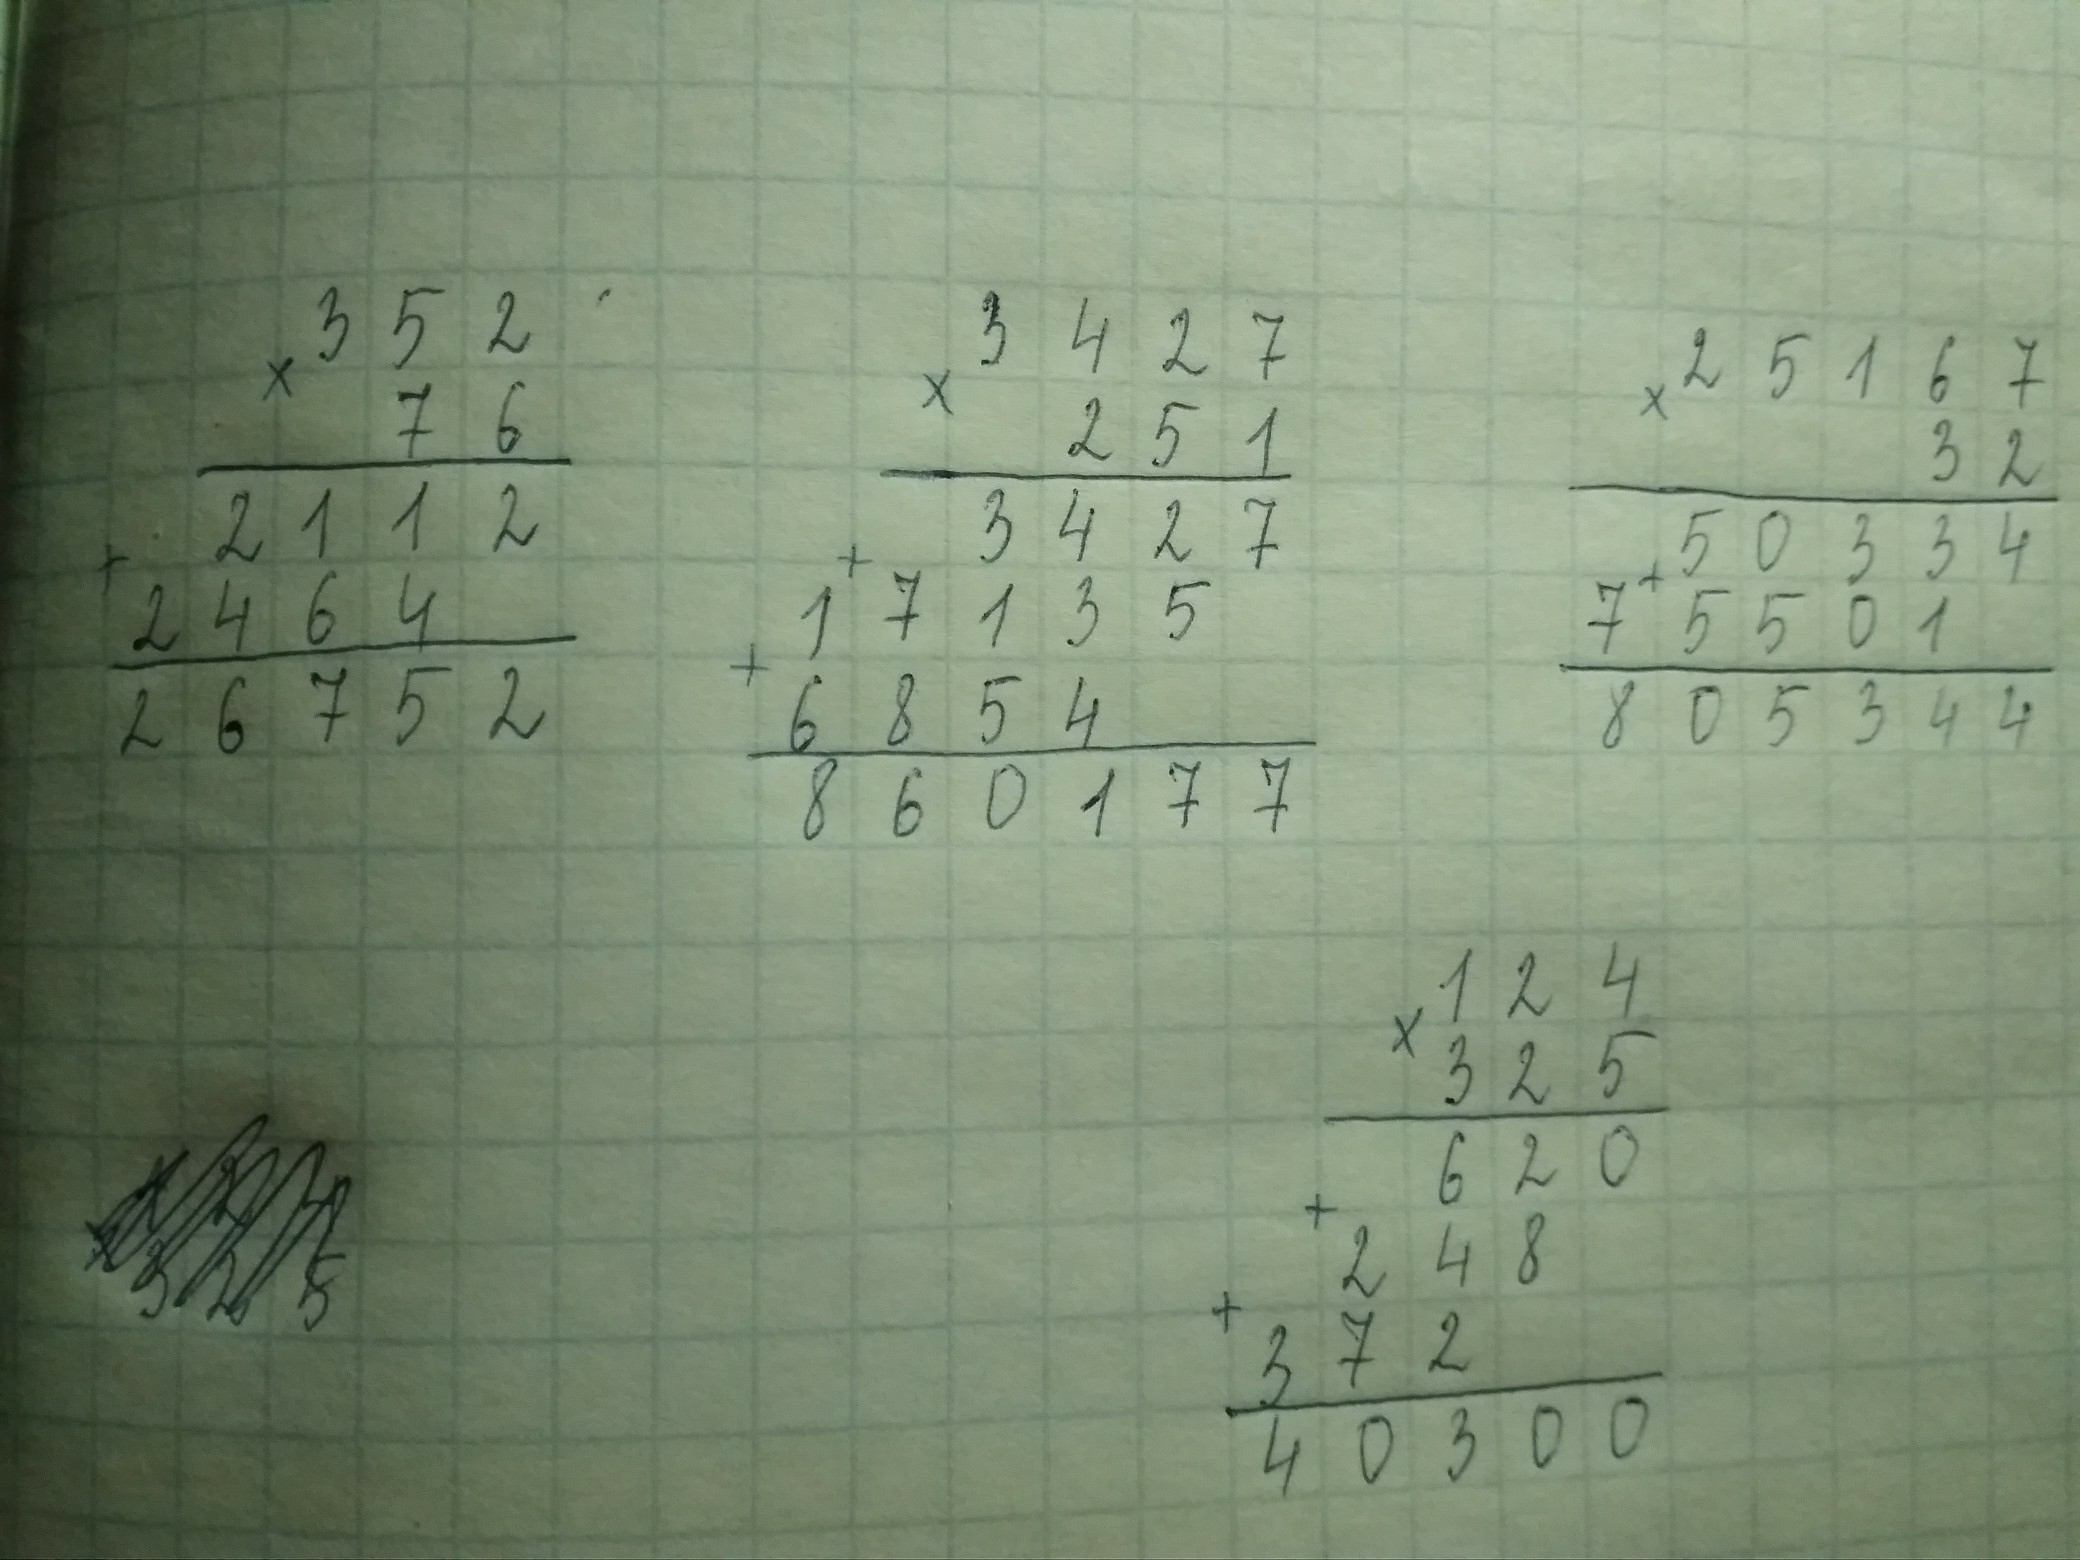 3 5 2
×
7 6
2 1 1 2
+
2 4 6 4
2 6 7 5 2
3 4 2 7
×
2 5 1
3 4 2 7
+
1 7 1 3 5
+
6 8 5 4
8 6 0 1 7 7
2 5 1 6 7
×
3 2
5 0 3 3 4
+
7 5 5 0 1
8 0 5 3 4 4
1 2 4
×
3 2 5
6 2 0
+
2 4 8
+
3 7 2
4 0 3 0 0
3 2 5